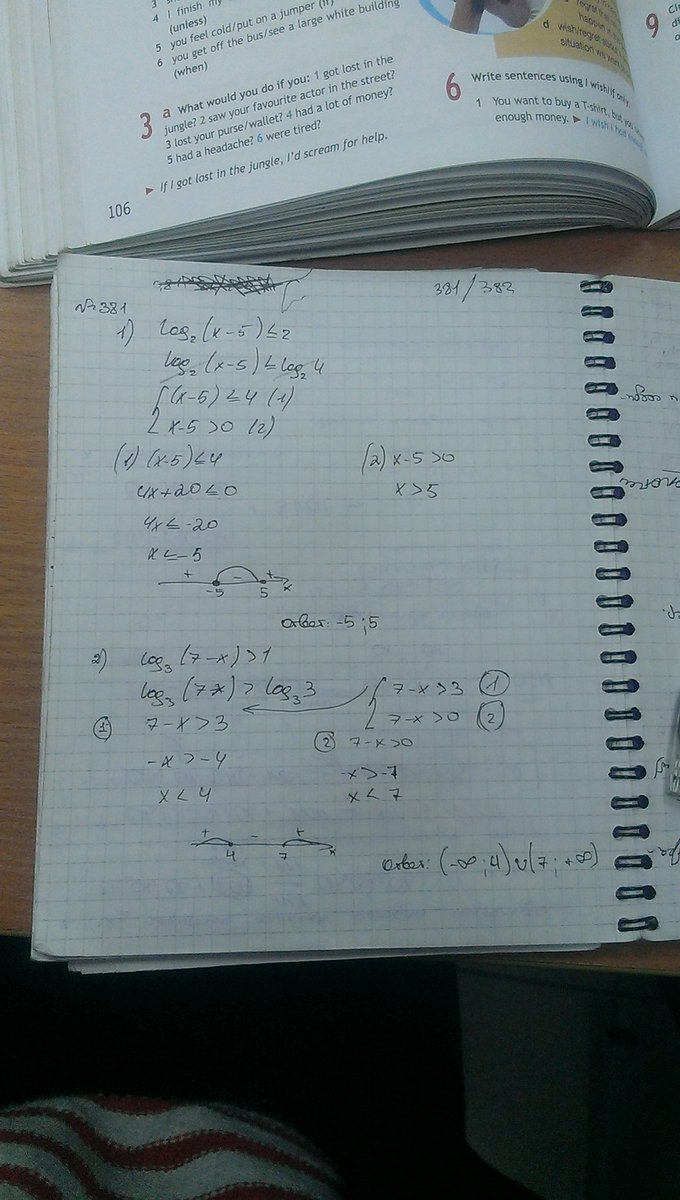 4 I finish my
(unless)
5 you feel cold/put on a jumper (if)
6 you get off the bus/see a large white building
(when)
3 a What would you do if you: 1 got lost in the
jungle? 2 saw your favourite actor in the street?
3 lost your purse/wallet? 4 had a lot of money?
5 had a headache? 6 were tired?
► If I got lost in the jungle, I'd scream for help.
106
d wish/regret about
situation
9
6 Write sentences using I wish/If only.
1 You want to buy a T-shirt, but you
enough money. ► I wish I had
381/382
№381
1) log₂(x-5)≤2
log₂(x-5)≤log₂4
{(x-5)≤4 (1)
x-5>0 (2)
(1) (x-5)≤4
4x+20≤0
4x≤-20
x≤-5
(2) x-5>0
x>5
+ - +
-5 5 x
Ответ: -5;5
2) log₃(7-x)>1
log₃(7-x)>log₃3
{7-x>3 (1)
7-x>0 (2)
(1) 7-x>3
-x>-4
x<4
(2) 7-x>0
-x>-7
x<7
+ - +
4 7 x
Ответ: (-∞;4)∪(7;+∞)